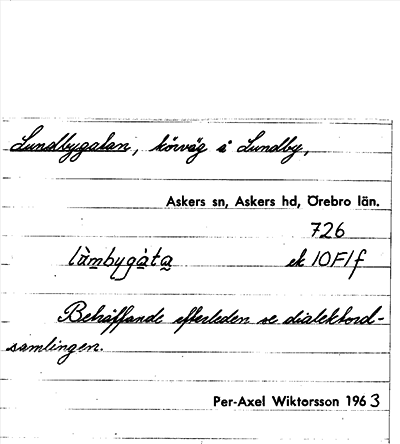 Lundbygatan, körväg i Lundby,
Askers sn, Askers hd, Örebro län.
726
làmbygàta ek 10F1f
Beträffande efterleden se dialektord-
samlingen.
Per-Axel Wiktorsson 1963